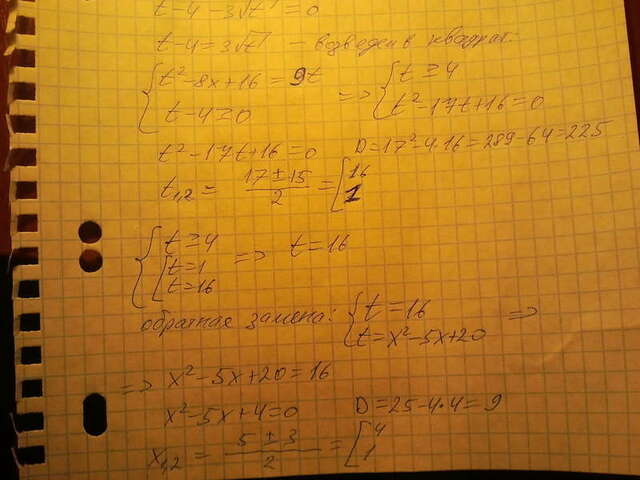 t-4-3√t = 0
t-4 = 3√t - возведем в квадрат:
{ t²-8x+16 = 9t => { t ≥ 4
t-4 ≥ 0 t²-17t+16=0
t²-17t+16=0 D=17²-4·16=289-64=225
t₁,₂ = (17±15)/2 = [ 16
1
{ t ≥ 4
[ t=1 => t=16
t=16
обратная замена: { t = 16 =>
t=x²-5x+20
=> x²-5x+20=16
x²-5x+4=0 D=25-4·4=9
x₁,₂ = (5±3)/2 = [ 4
1